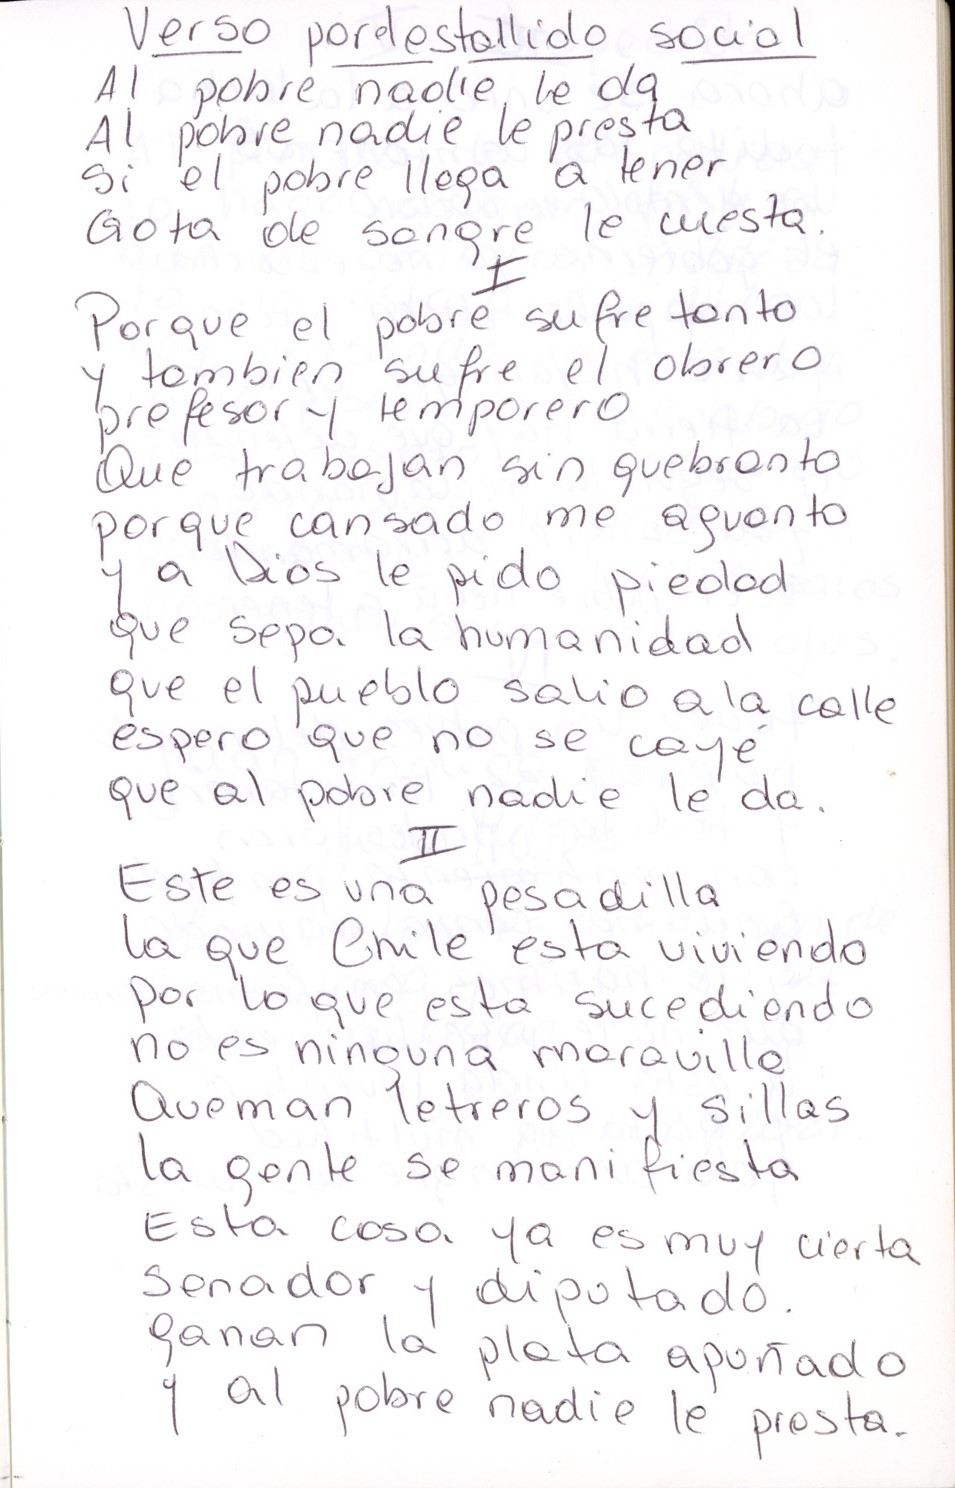 Verso por el estallido social
Al pobre nadie le da
Al pobre nadie le presta
Si el pobre llega a tener
Gota de sangre le cuesta.
I
Porque el pobre sufre tanto
y tambien sufre el obrero
profesor y temporero
Que trabajan sin quebranto
porque cansado me aguanto
y a Dios le pido piedad
que sepa la humanidad
que el pueblo salio a la calle
espero que no se caye
que al pobre nadie le da.
II
Este es una pesadilla
la que Chile esta viviendo
por lo que esta sucediendo
no es ninguna maravilla
Queman letreros y sillas
la gente se manifiesta
Esta cosa ya es muy cierta
senador y diputado.
ganan la plata apuñado
y al pobre nadie le presta.